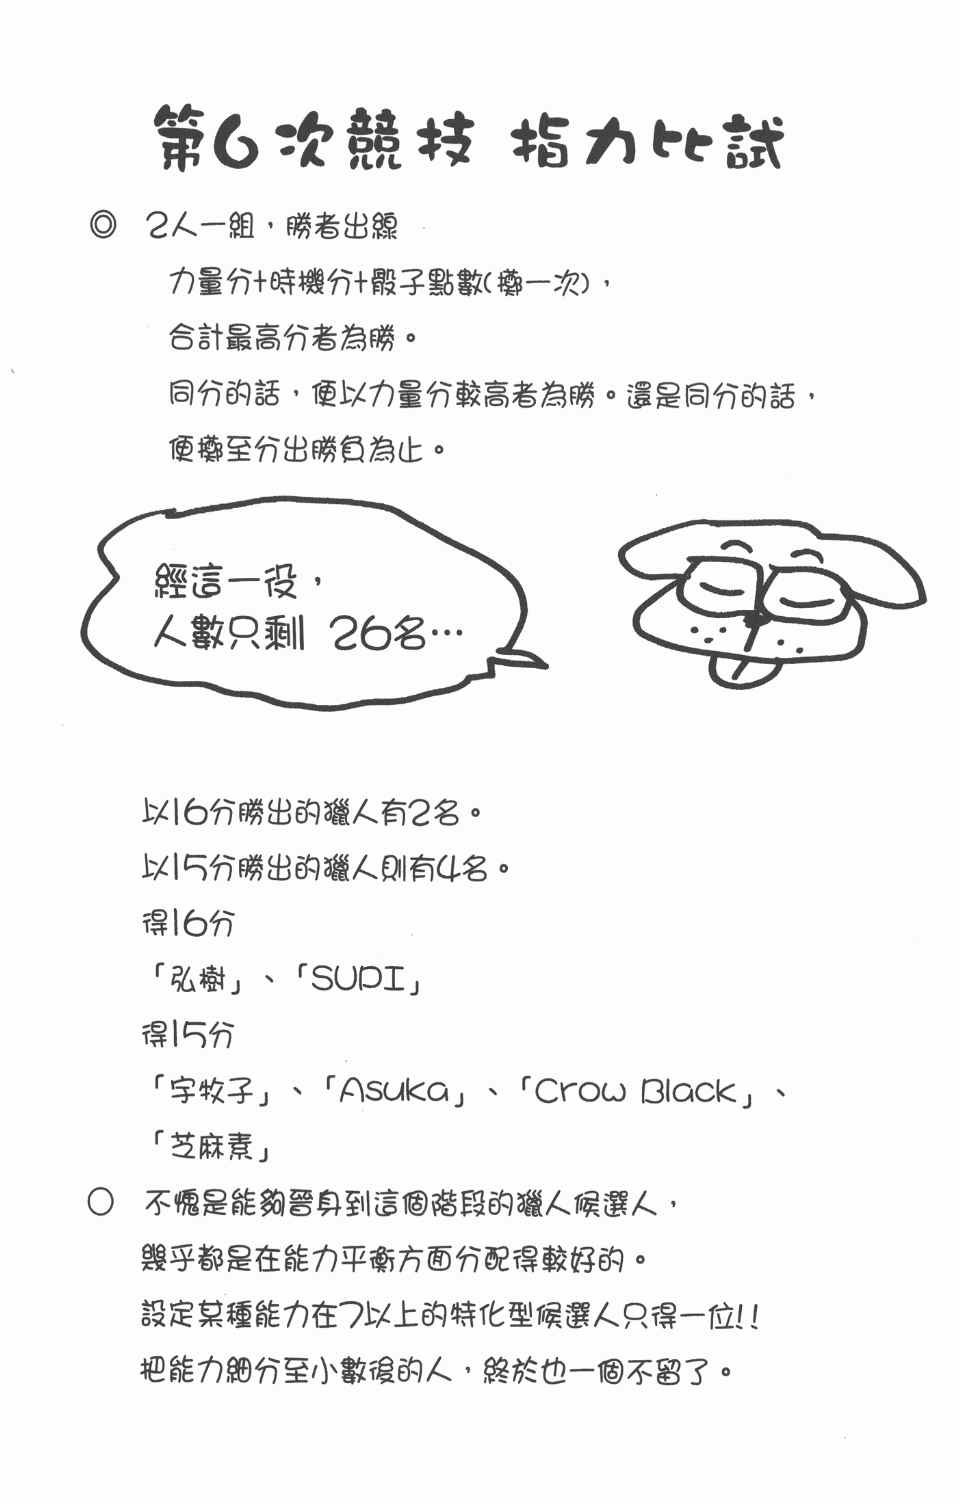 第6次競技 指力比試
◎ 2人一組，勝者出線
力量分+時機分+骰子點數(擲一次)，
合計最高分者為勝。
同分的話，便以力量分較高者為勝。還是同分的話，
便擲至分出勝負為止。
經這一役，
人數只剩 26名…
以16分勝出的獵人有2名。
以15分勝出的獵人則有4名。
得16分
「弘樹」、「SUPI」
得15分
「宇牧子」、「Asuka」、「Crow Black」、
「芝麻素」
○ 不愧是能夠晉身到這個階段的獵人候選人，
幾乎都是在能力平衡方面分配得較好的。
設定某種能力在7以上的特化型候選人只得一位!!
把能力細分至小數後的人，終於也一個不留了。